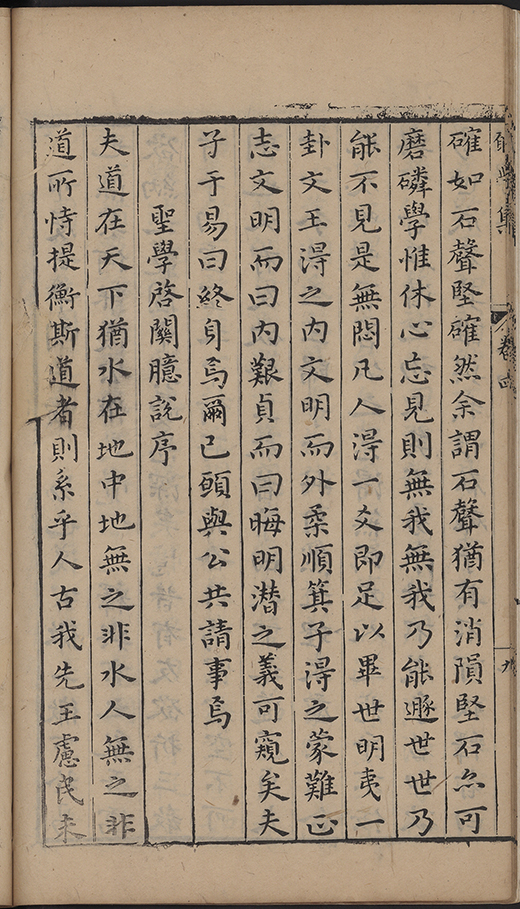 學集
卷四
九
確如石聲堅確然余謂石聲猶有消隕堅石亦可
磨磷學惟休心忘見則無我無我乃能遯世世乃
能不見是無悶凡人淂一爻即足以畢世明夷一
卦文王淂之内文明而外柔順箕子淂之蒙難正
志文明而曰内艱貞而曰晦明潛之義可窺矣夫
子于易曰終身焉爾已頋與公共請事焉
聖學啓關臆說序
夫道在天下猶水在地中地無之非水人無之非
道所恃提衡斯道者則系乎人古我先王慮民未